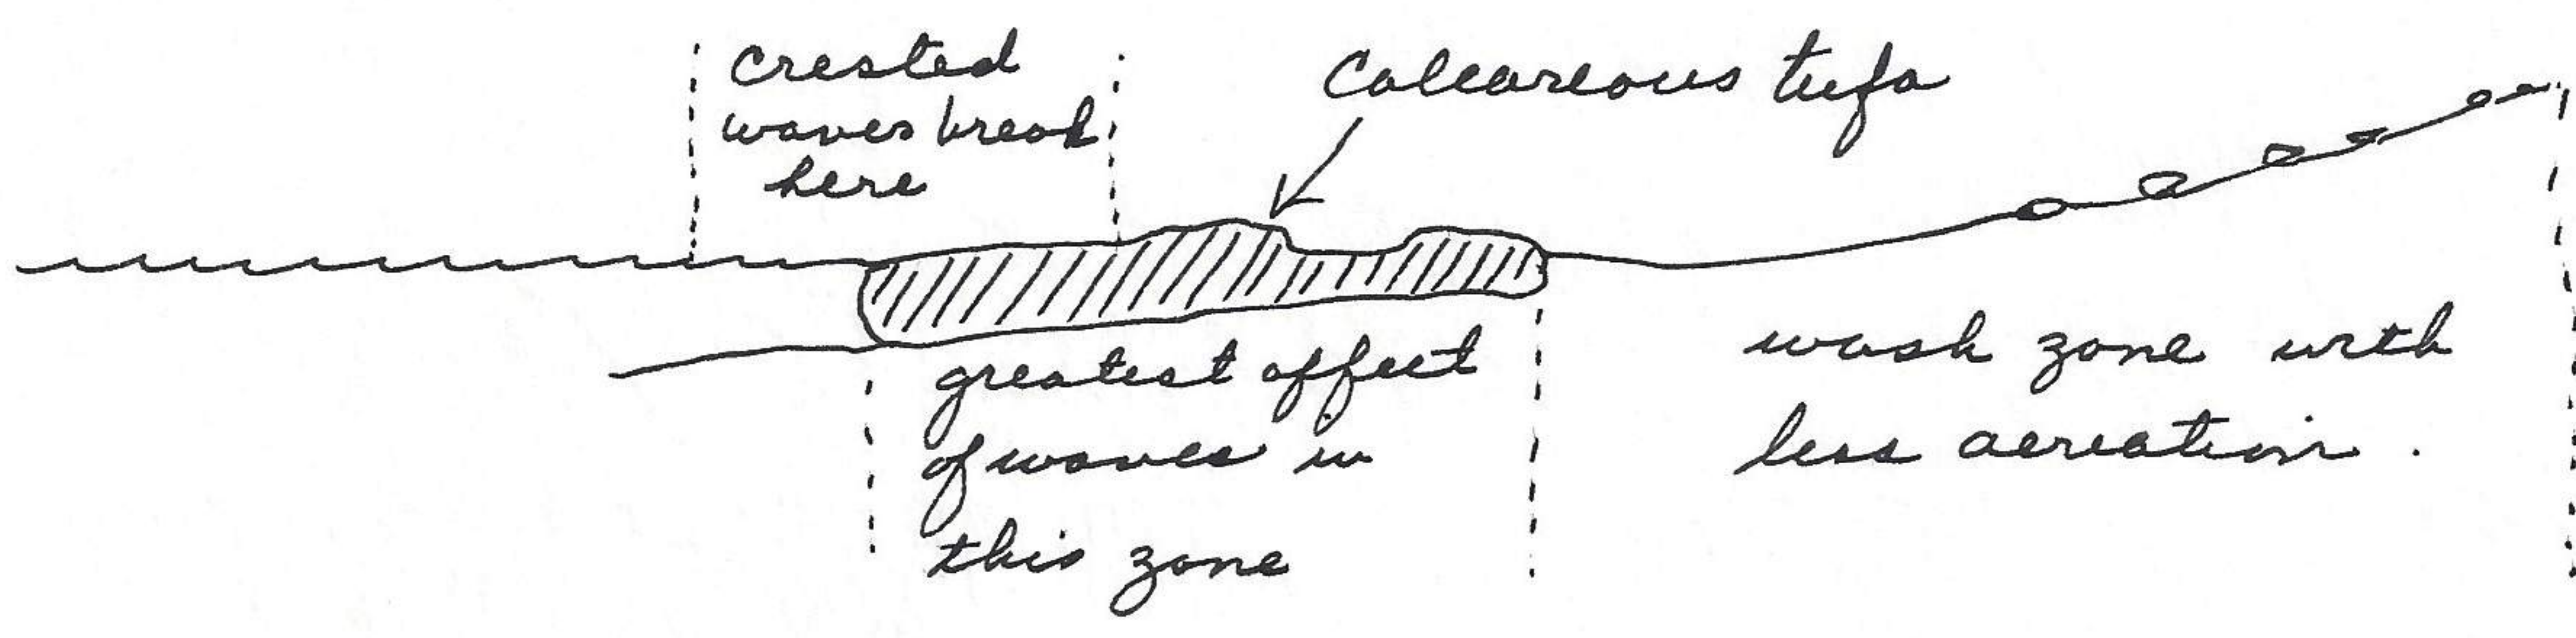 crested
waves break
here
Calcareous tufa
greatest affect
of waves in
this zone
wash zone with
less aereation.